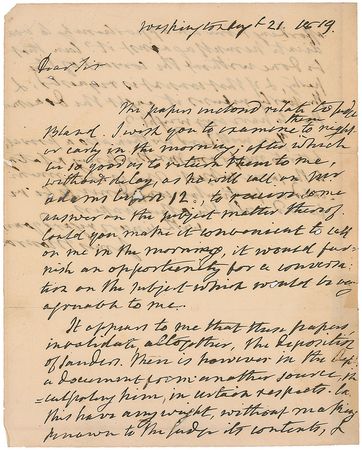 Washington Augt 21. 1819.
Dear Sir
The papers inclosd relate to Judge
Bland. I wish you to examine them to night
or early in the morning, after which
be so good as to return them to me,
without delay, as he will call on Mr
Adams before 12., to receive some
answer on the subject matter thereof.
Could you make it convenient to call
on me in the morning, it would fur-
nish an opportunity for a conversa-
tion on the subject which would be very
agreeable to me.
It appears to me that these papers
invalidate altogether, the deposition
of Sanders. There is however in the Dept.
a document from another source, in-
culpating him, in certain respects. Can
this have any weight, without making
known to the Judge its contents, &